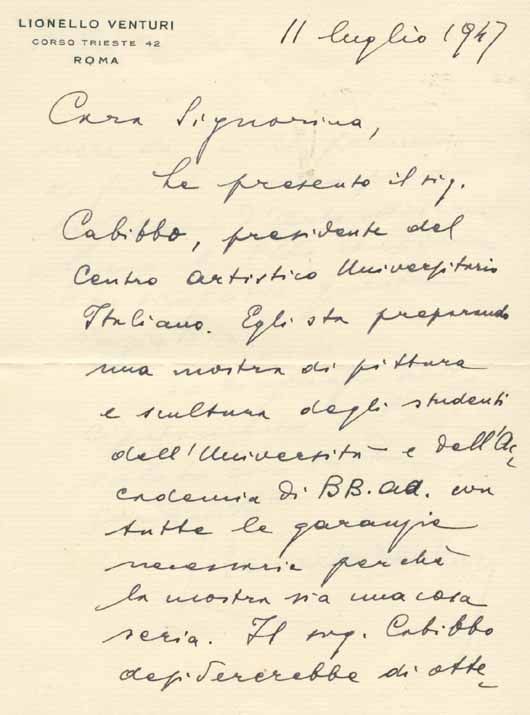 LIONELLO VENTURI
CORSO TRIESTE 42
ROMA
11 luglio 1947
Cara Signorina,
Le presento il sig.
Cabibbo, presidente del
Centro Artistico Universitario
Italiano. Egli sta preparando
una mostra di pittura
e scultura degli studenti
dell'Università e dell'Ac-
cademia di BB. aa. con
tutte le garanzie
necessarie perchè
la mostra sia una cosa
seria. Il sig. Cabibbo
desidererebbe di otte-